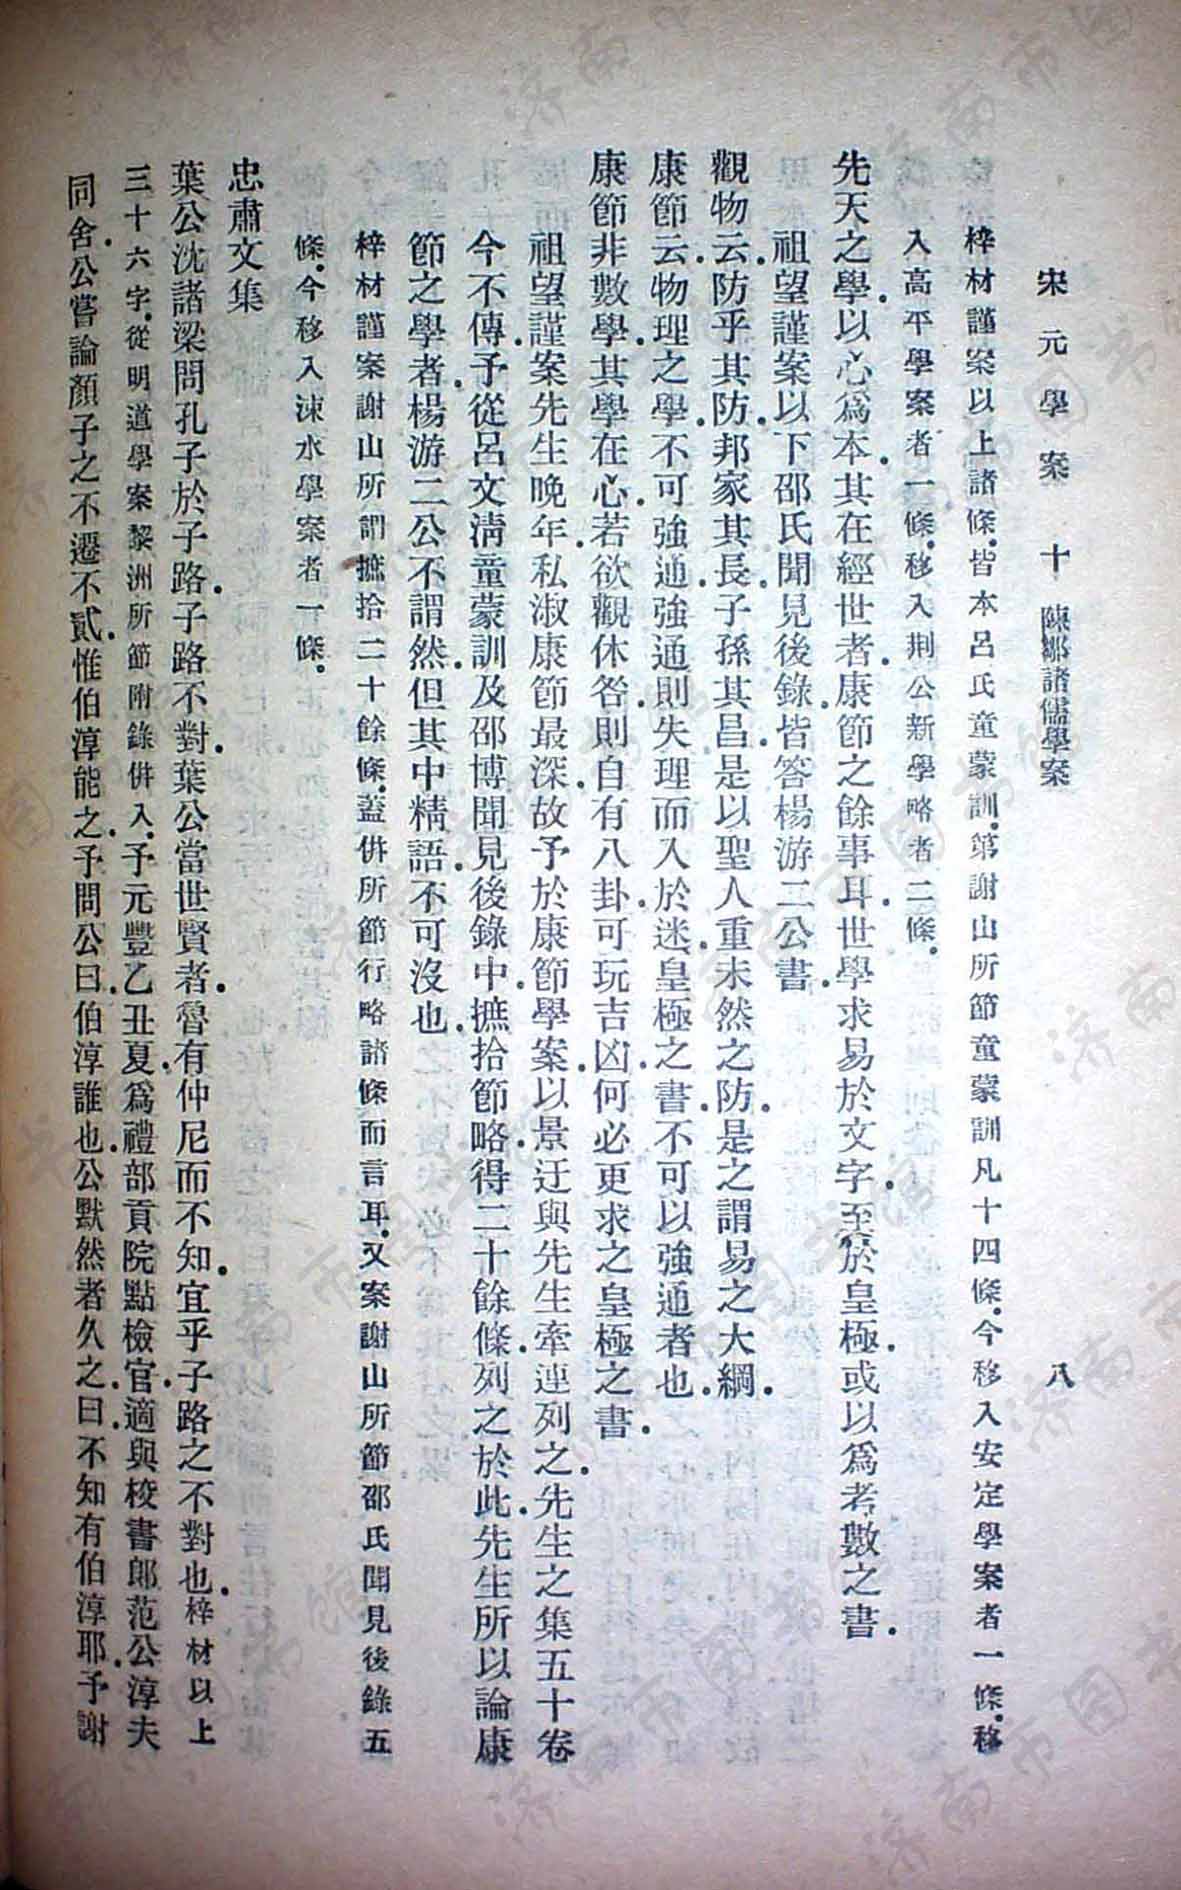 宋元學案 十 陳鄒諸儒學案 八
梓材謹案以上諸條.皆本呂氏童蒙訓.第謝山所節童蒙訓凡十四條.今移入安定學案者一條.移
入高平學案者一條.移入荆公新學略者二條.
先天之學.以心爲本.其在經世者.康節之餘事耳.世學求易於文字.至於皇極.或以爲考數之書.
祖望謹案.以下邵氏聞見後錄.皆答楊游二公書.
觀物云.防乎其防.邦家其長.子孫其昌.是以聖人重未然之防.是之謂易之大綱.
康節云.物理之學.不可強通.強通則失理而入於迷.皇極之書.不可以強通者也.
康節非數學.其學在心.若欲觀休咎.則自有八卦可玩吉凶.何必更求之皇極之書.
祖望謹案.先生晚年.私淑康節最深.故予於康節學案.以景迂與先生牽連列之.先生之集五十卷
今不傳.予從呂文淸童蒙訓及邵博聞見後錄中.摭拾節略.得二十餘條.列之於此.先生所以論康
節之學者.楊游二公不謂然.但其中精語.不可沒也.
梓材謹案謝山所謂摭拾二十餘條.蓋倂所節行略諸條而言耳.又案謝山所節邵氏聞見後錄五
條.今移入涑水學案者一條.
忠肅文集
葉公沈諸梁問孔子於子路.子路不對.葉公當世賢者.魯有仲尼而不知.宜乎子路之不對也.梓材以上
三十六字.從明道學案黎洲所節附錄倂入.予元豐乙丑夏.爲禮部貢院點檢官.適與校書郞范公淳夫
同舍.公嘗論顏子之不遷不貳.惟伯淳能之.予問公曰.伯淳誰也.公默然者久之.曰.不知有伯淳耶.予謝